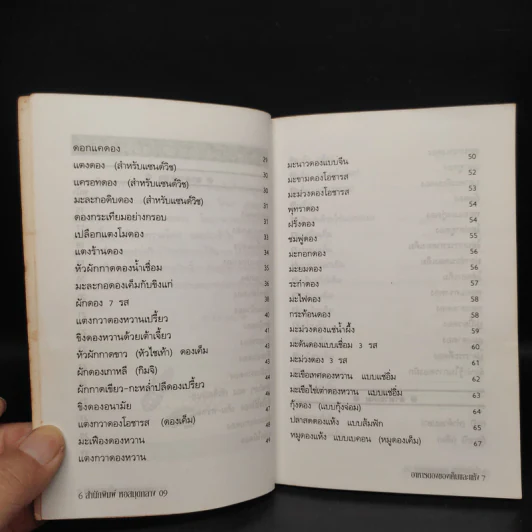 ดอกแคดอง 29
แตงดอง (สำหรับแซนด์วิช) 30
แครอทดอง (สำหรับแซนด์วิช) 30
มะละกอดิบดอง (สำหรับแซนด์วิช) 31
ดองกระเทียมอย่างกรอบ 32
เปลือกแตงโมดอง 33
แตงร้านดอง 34
หัวผักกาดดองน้ำเชื่อม 35
มะละกอดองเค็มกับขิงแก่
ผักดอง 7 รส
แตงกวาดองหวานเปรี้ยว
ขิงดองหวานด้วยเต้าเจี้ยว
หัวผักกาดขาว (หัวไชเท้า) ดองเค็ม
ผักดองเกาหลี (กิมจิ)
ผักกาดเขียว-กะหล่ำปลีดองเปรี้ยว
ขิงดองอนามัย
แตงกวาดองโอชารส (ดองเค็ม)
มะเฟืองดองหวาน
แตงกวาดองหวาน
6 สำนักพิมพ์
มะนาวดองแบบจีน 50
มะขามดองโอชารส 52
มะม่วงดองโอชารส 53
พุทราดอง 54
ฝรั่งดอง 54
ชมพู่ดอง 55
มะกอกดอง 56
มะยมดอง 56
ระกำดอง 57
มะไฟดอง 58
กระท้อนดอง 58
มะม่วงดองแช่น้ำผึ้ง 59
มะดันดองแบบเชื่อม 3 รส 60
มะม่วงดอง 3 รส 61
มะเขือเทศดองหวาน แบบแช่อิ่ม 62
มะเขือไข่เต่าดองหวาน แบบแช่อิ่ม 63
กุ้งดอง (แบบกุ้งจ่อม) 64
ปลาสดดองแห้ง แบบส้มฟัก 65
หมูดองแห้ง แบบเบคอน (หมูดองเค็ม) 67
7